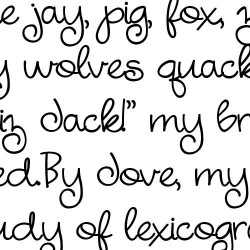 e jay, pig, fox, z
y wolves quack
in, Jack!" my br
ed. By Jove, my
udy of lexicogr